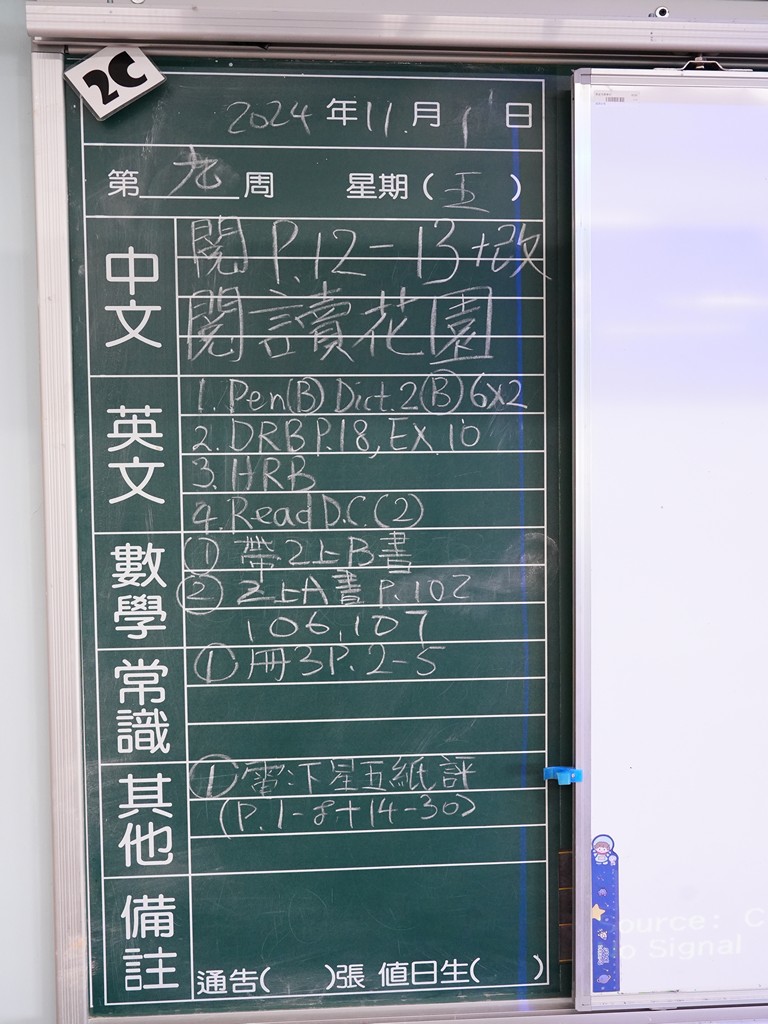 2C
2024年11月1日
第九周 星期(五)
中文
閱 P.12-13+改
閱讀花園
英文
1. Pen(B) Dict.2(B)6x2
2. DRB P.18, Ex.10
3. HRB
4. Read D.C.(2)
數學
① 帶2上B書
② 2上A書 P.102
106,107
常識
① 冊3P.2-5
其他
① 下星五紙評
(P.1-8+14-30)
備註
通告( )張 值日生( )
ource: C
o Signal